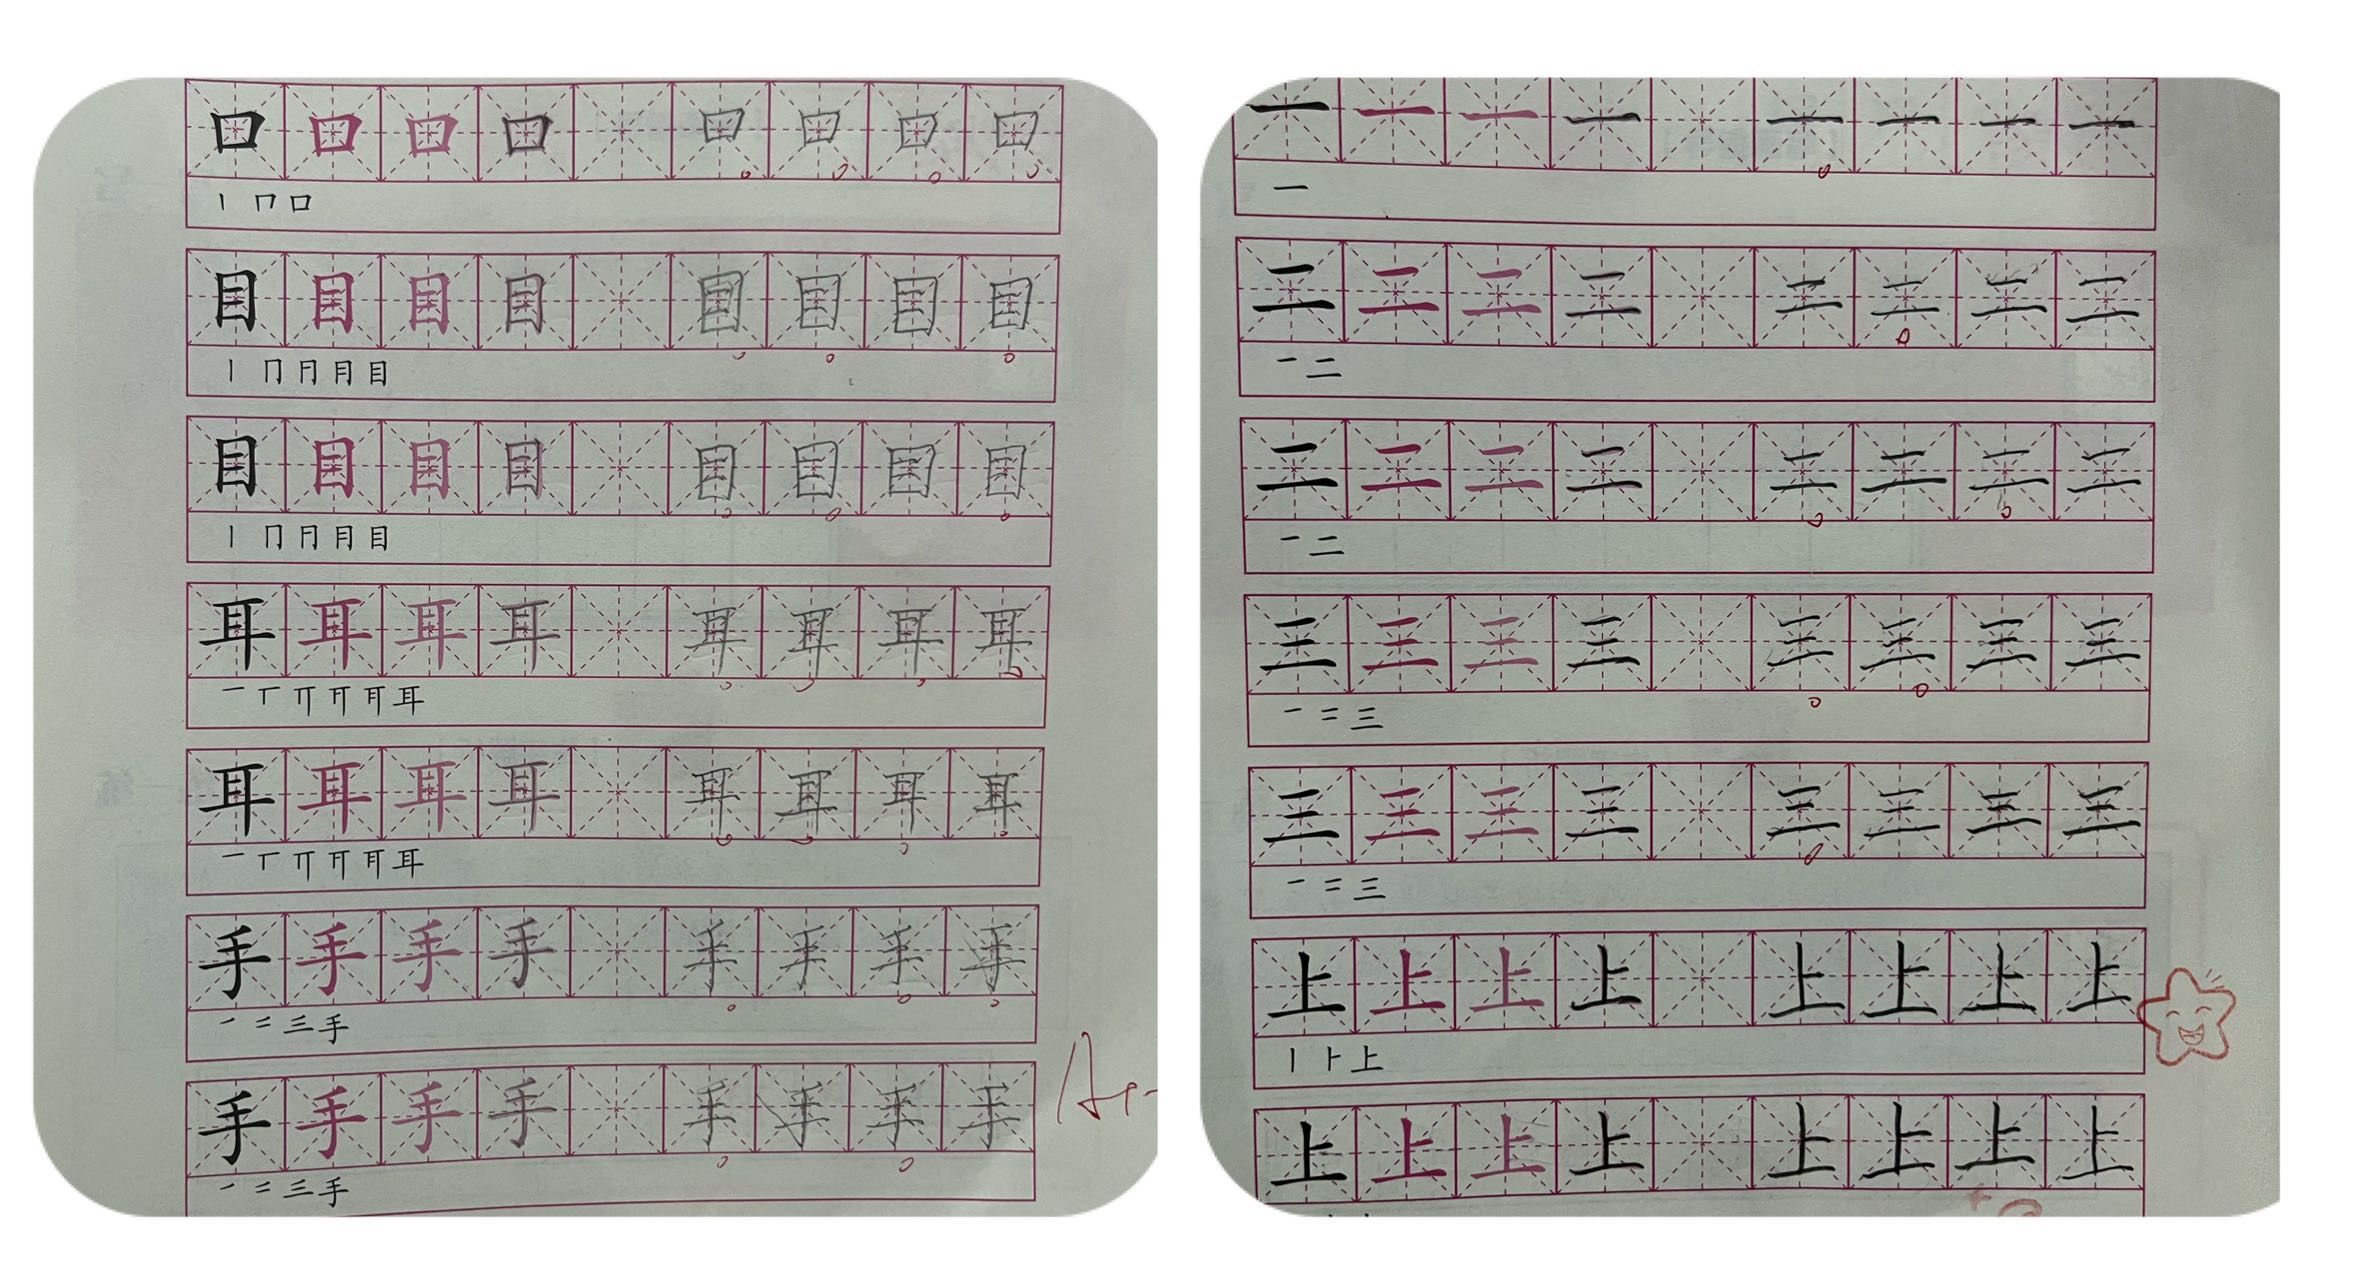 口 口 口 口 口 口 口 口
丨 冂 口
目 目 目 目 目 目 目 目
丨 冂 月 月 目
目 目 目 目 目 目 目 目
丨 冂 月 月 目
耳 耳 耳 耳 耳 耳 耳 耳
一 丅 丌 耳
耳 耳 耳 耳 耳 耳 耳 耳
一 丅 丌 耳
手 手 手 手 手 手 手 手
一 二 三 手
手 手 手 手 手 手 手 手
一 二 三 手
A+
一 一 一 一 一 一 一 一
一
二 二 二 二 二 二 二 二
一 二
二 二 二 二 二 二 二 二
一 二
三 三 三 三 三 三 三 三
一 二 三
三 三 三 三 三 三 三 三
一 二 三
上 上 上 上 上 上 上 上
丨 ⺊ 上
上 上 上 上 上 上 上 上